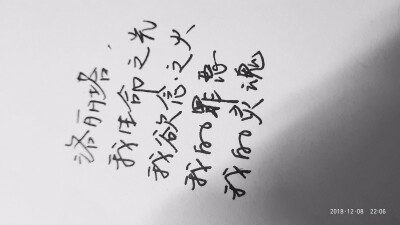 洛丽塔，
我生命之光
我欲念之火
我的罪恶
我的灵魂
2018-12-08 22:06